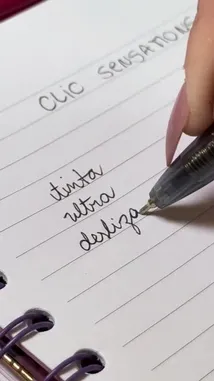 CLIC SENSATIONE
tinta
ultra
desliza